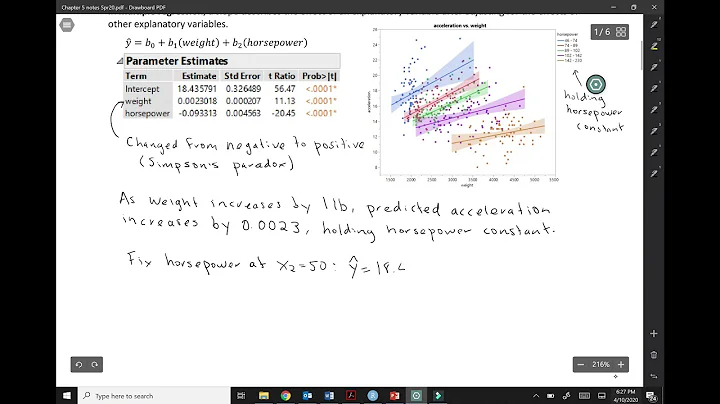 Chapter 5 notes Spr20.pdf - Drawboard PDF
other explanatory variables.
1 / 6
ŷ = b₀ + b₁(weight) + b₂(horsepower)
Parameter Estimates
Term Estimate Std Error t Ratio Prob>|t|
Intercept 18.435791 0.326489 56.47 <.0001*
weight 0.0023018 0.000207 11.13 <.0001*
horsepower -0.093313 0.004563 -20.45 <.0001*
acceleration vs. weight
acceleration
26
24
22
20
18
16
14
12
10
8
1500 2000 2500 3000 3500 4000 4500 5000 5500
weight
horsepower
46 - 74
74 - 89
89 - 102
102 - 142
142 - 230
holding
horsepower
constant
Changed from negative to positive
(Simpson's paradox)
As weight increases by 1 lb, predicted acceleration
increases by 0.0023, holding horsepower constant.
Fix horsepower at x₂=50: ŷ=18.4
216%
Type here to search
6:27 PM
4/10/2020